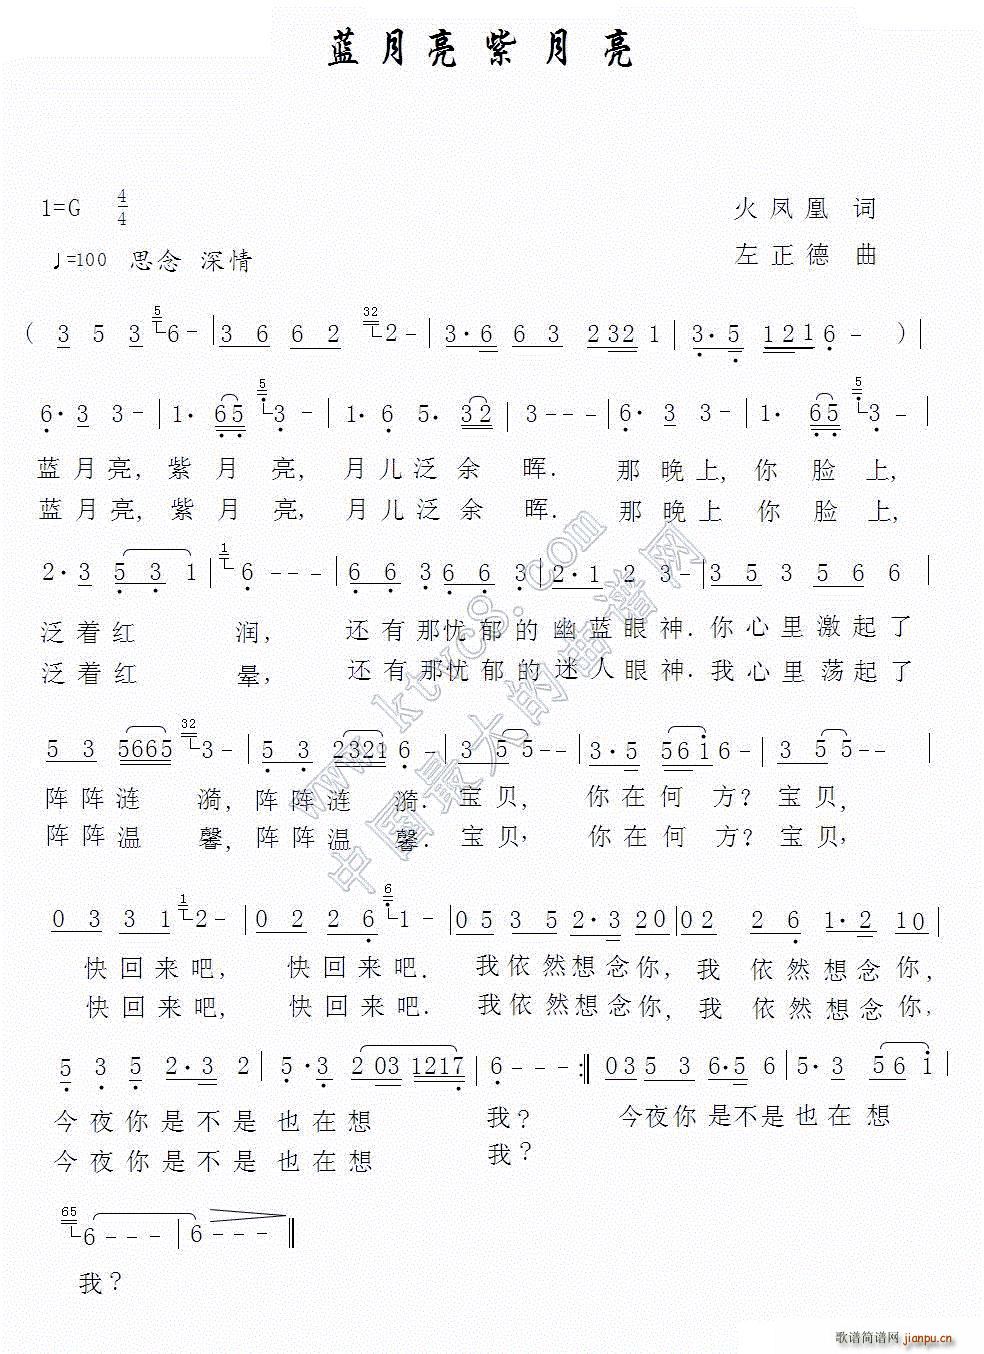 蓝月亮紫月亮
1=G 4/4 火凤凰 词
♩=100 思念 深情 左正德 曲
( 3 5 3 5 6 - | 3 6 6 2 32 2 - | 3· 6 6 3 2 32 1 | 3· 5 1 2 1 6 - ) |
6· 3 3 - | 1· 6 5 5 3 - | 1· 6 5· 3 2 | 3 - - - | 6· 3 3 - | 1· 6 5 5 3 - |
蓝月亮,紫月亮,月儿泛余晖.那晚上,你脸上,
蓝月亮,紫月亮,月儿泛余晖.那晚上你脸上,
2· 3 5 3 1 | 1 6 - - - | 6 6 3 6 6 3 | 2· 1 2 3 - | 3 5 3 5 6 6 |
泛着红润,还有那忧郁的幽蓝眼神.你心里激起了
泛着红晕,还有那忧郁的迷人眼神.我心里荡起了
5 3 5665 32 3 - | 5 3 2321 6 - | 3 5 5 - - | 3· 5 5 6 1 6 - | 3 5 5 - - |
阵阵涟漪,阵阵涟漪.宝贝,你在何方?宝贝,
阵阵温馨,阵阵温馨.宝贝,你在何方?宝贝,
0 3 3 1 1 2 - | 0 2 2 6 6 1 - | 0 5 3 5 2· 3 2 0 | 0 2 2 6 1· 2 1 0 |
快回来吧,快回来吧.我依然想念你,我依然想念你,
快回来吧,快回来吧.我依然想念你,我依然想念你,
5 3 5 2· 3 2 | 5· 3 2 03 1217 | 6 - - - :‖ 0 3 5 3 6· 5 5 | 5· 3 5 6 1 |
今夜你是不是也在想我?今夜你是不是也在想
今夜你是不是也在想我?
65 6 - - - | 6 - - - ‖
我?
www.ktvc8.com
中国最大的曲谱网
歌谱简谱网jianpu.cn